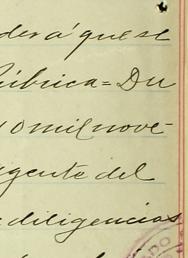 derá que se
úbrica = Du
io mil nove-
igente del
diligencias